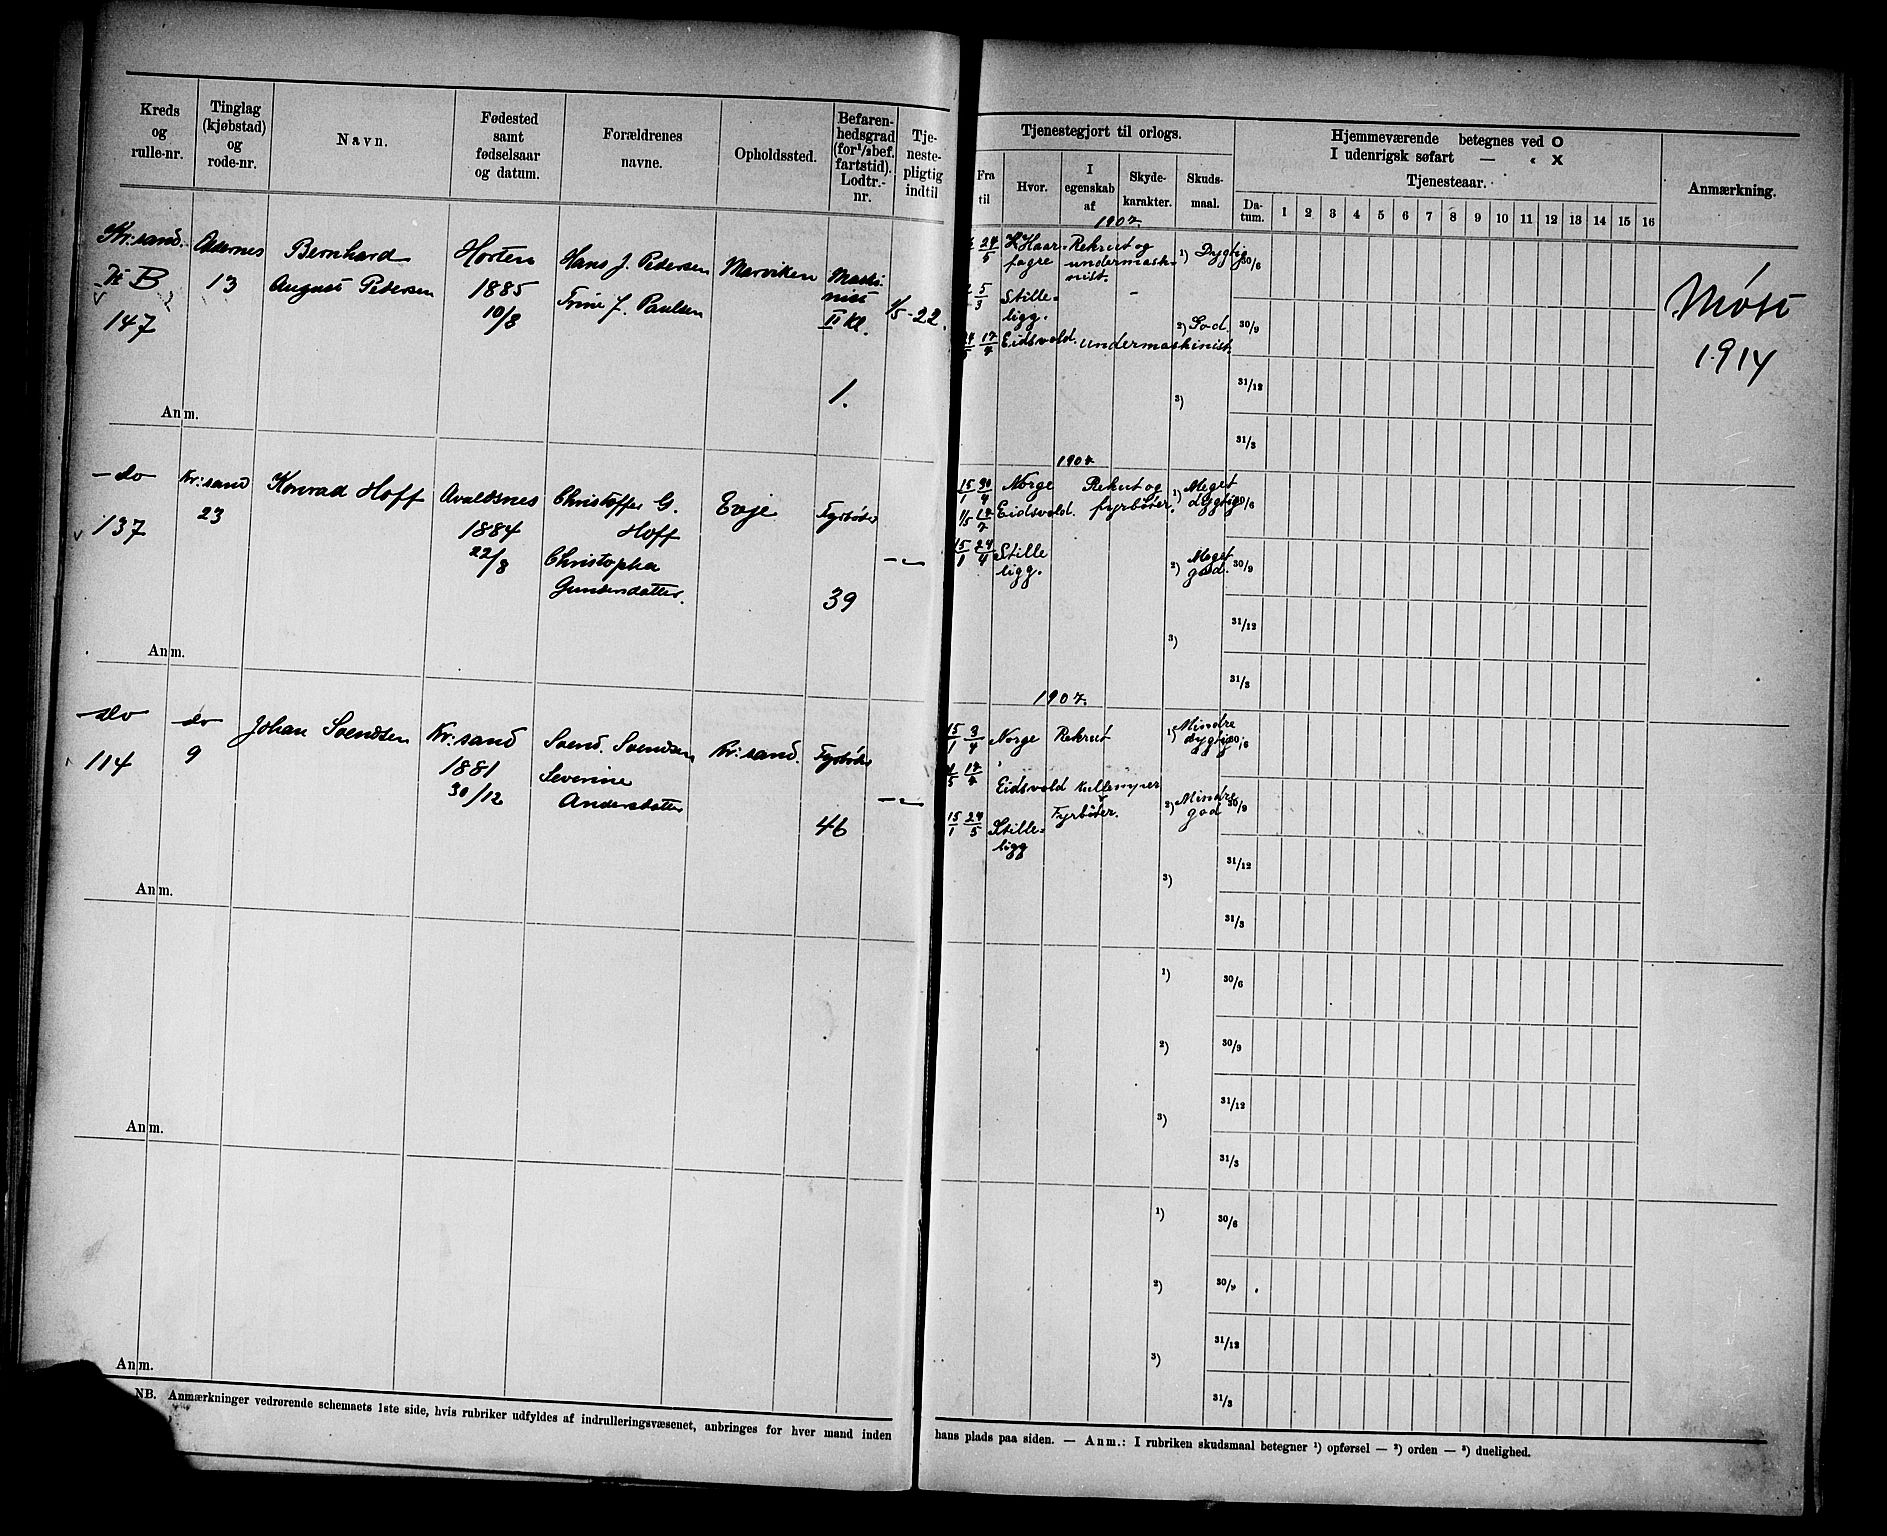 Kreds og rulle-nr.
Tinglag (kjøbstad) og rode-nr.
Navn.
Fødested samt fødselsaar og datum.
Forældrenes navne.
Opholdssted.
Befaren-hedsgrad (for ½ bef. fartstid). Lodtr.-nr.
Tje-neste-pligtig indtil
Tjenestegjort til orlogs.
Fra til
Hvor.
I egenskab af
Skyde-karakter.
Skuds-maal.
Hjemmeværende betegnes ved O
I udenrigsk søfart — " X
Tjenesteaar.
Da-tum.
1 2 3 4 5 6 7 8 9 10 11 12 13 14 15 16
Anmærkning.
Kr:sand.
B
147
Oddernes
13
Bernhard
August Pedersen
Horten
1885
10/8
Hans J. Pedersen
Trine J. Paulsen
Marviken
Maski-
nist
II Kl.
1.
1/5-22.
1907.
24/5
H Haar-
fagre
Rekrut og
undermaski-
nist.
5/3
Stille-
ligg.
-
17/7
Eidsvold.
undermaskinist.
1) Dygtig
2) God.
3)
30/6
30/9
31/12
31/3
Møst
1914
Anm.
-do
137
Kr:sand
23
Konrad Hoff
Avaldsnes
1884
22/8
Christoffer G.
Hoff
Christopha
Gundersdatter.
Evje
Fyrbøter
39
1907
15/1 30/4 Norge
Rekrut og
fyrbøter.
1/5 17/7 Eidsvold.
15/1 24/4 Stille
ligg.
1) Meget
dygtig
2) Meget
god.
3)
30/6
30/9
31/12
31/3
Anm.
-do
114
do
9
Johan Svendsen
Kr:sand
1881
30/12
Svend. Svendsen
Severine
Andersdatter
Kr:sand.
Fyrbøter
46
1907.
15/1 3/4 Norge
Rekrut
17/7
Eidsvold Kullemper
Fyrbøter.
15/1 24/5 Stille-
ligg
1) Mindre
dygtig
2) Mindre
god
3)
30/6
30/9
31/12
31/3
Anm.
1)
2)
3)
30/6
30/9
31/12
31/3
Anm.
1)
2)
3)
30/6
30/9
31/12
31/3
Anm.
NB. Anmærkninger vedrørende schemaets 1ste side, hvis rubriker udfyldes af indrulleringsvæsenet, anbringes for hver mand inden
hans plads paa siden. — Anm.: I rubriken skudsmaal betegner ¹) opførsel — ²) orden — ³) duelighed.